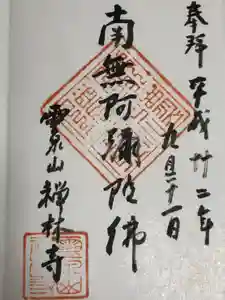 奉拜
平成廿二年
九月二十一日
南無阿彌陀佛
霊泉山
禅林寺